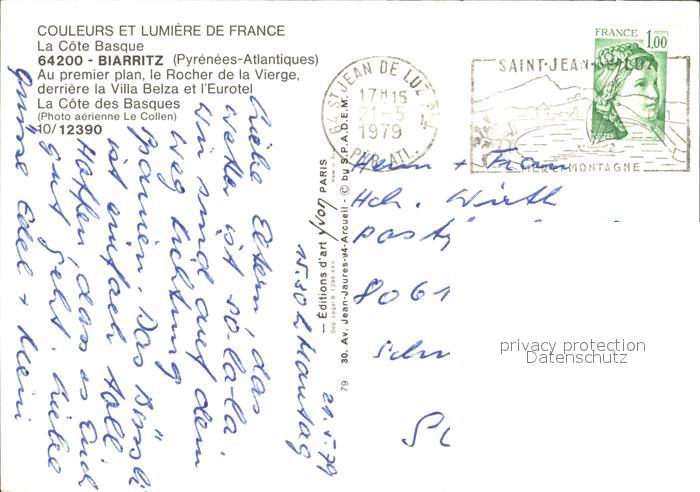 COULEURS ET LUMIÈRE DE FRANCE
La Côte Basque
64200 - BIARRITZ (Pyrénées-Atlantiques)
Au premier plan, le Rocher de la Vierge,
derrière la Villa Belza et l'Eurotel
La Côte des Basques
(Photo aérienne Le Collen)
10/12390
Liebe Eltern, das
Wetter ist so-la-la.
Wir sind auf dem
Weg Richtung
Spanien. Das Büsli
ist einfach toll.
Hoffen, dass es Euch
gut geht. Liebe
Grüsse Edel + Heini
15.30 h Montag
21.5.79
— Éditions d'art yvon PARIS
Dép. Légal B. 1290-XXII
30. Av. Jean-Jaurès-94-Arcueil - © by S.P.A.D.E.M.
79
64 ST JEAN DE LUZ
17H15
21-5
1979
PYR. ATL.
SAINT-JEAN-DE-LUZ
MER ET MONTAGNE
FRANCE
1,00
Herrn + Frau
Hch. Wirth
8061
privacy protection
Datenschutz